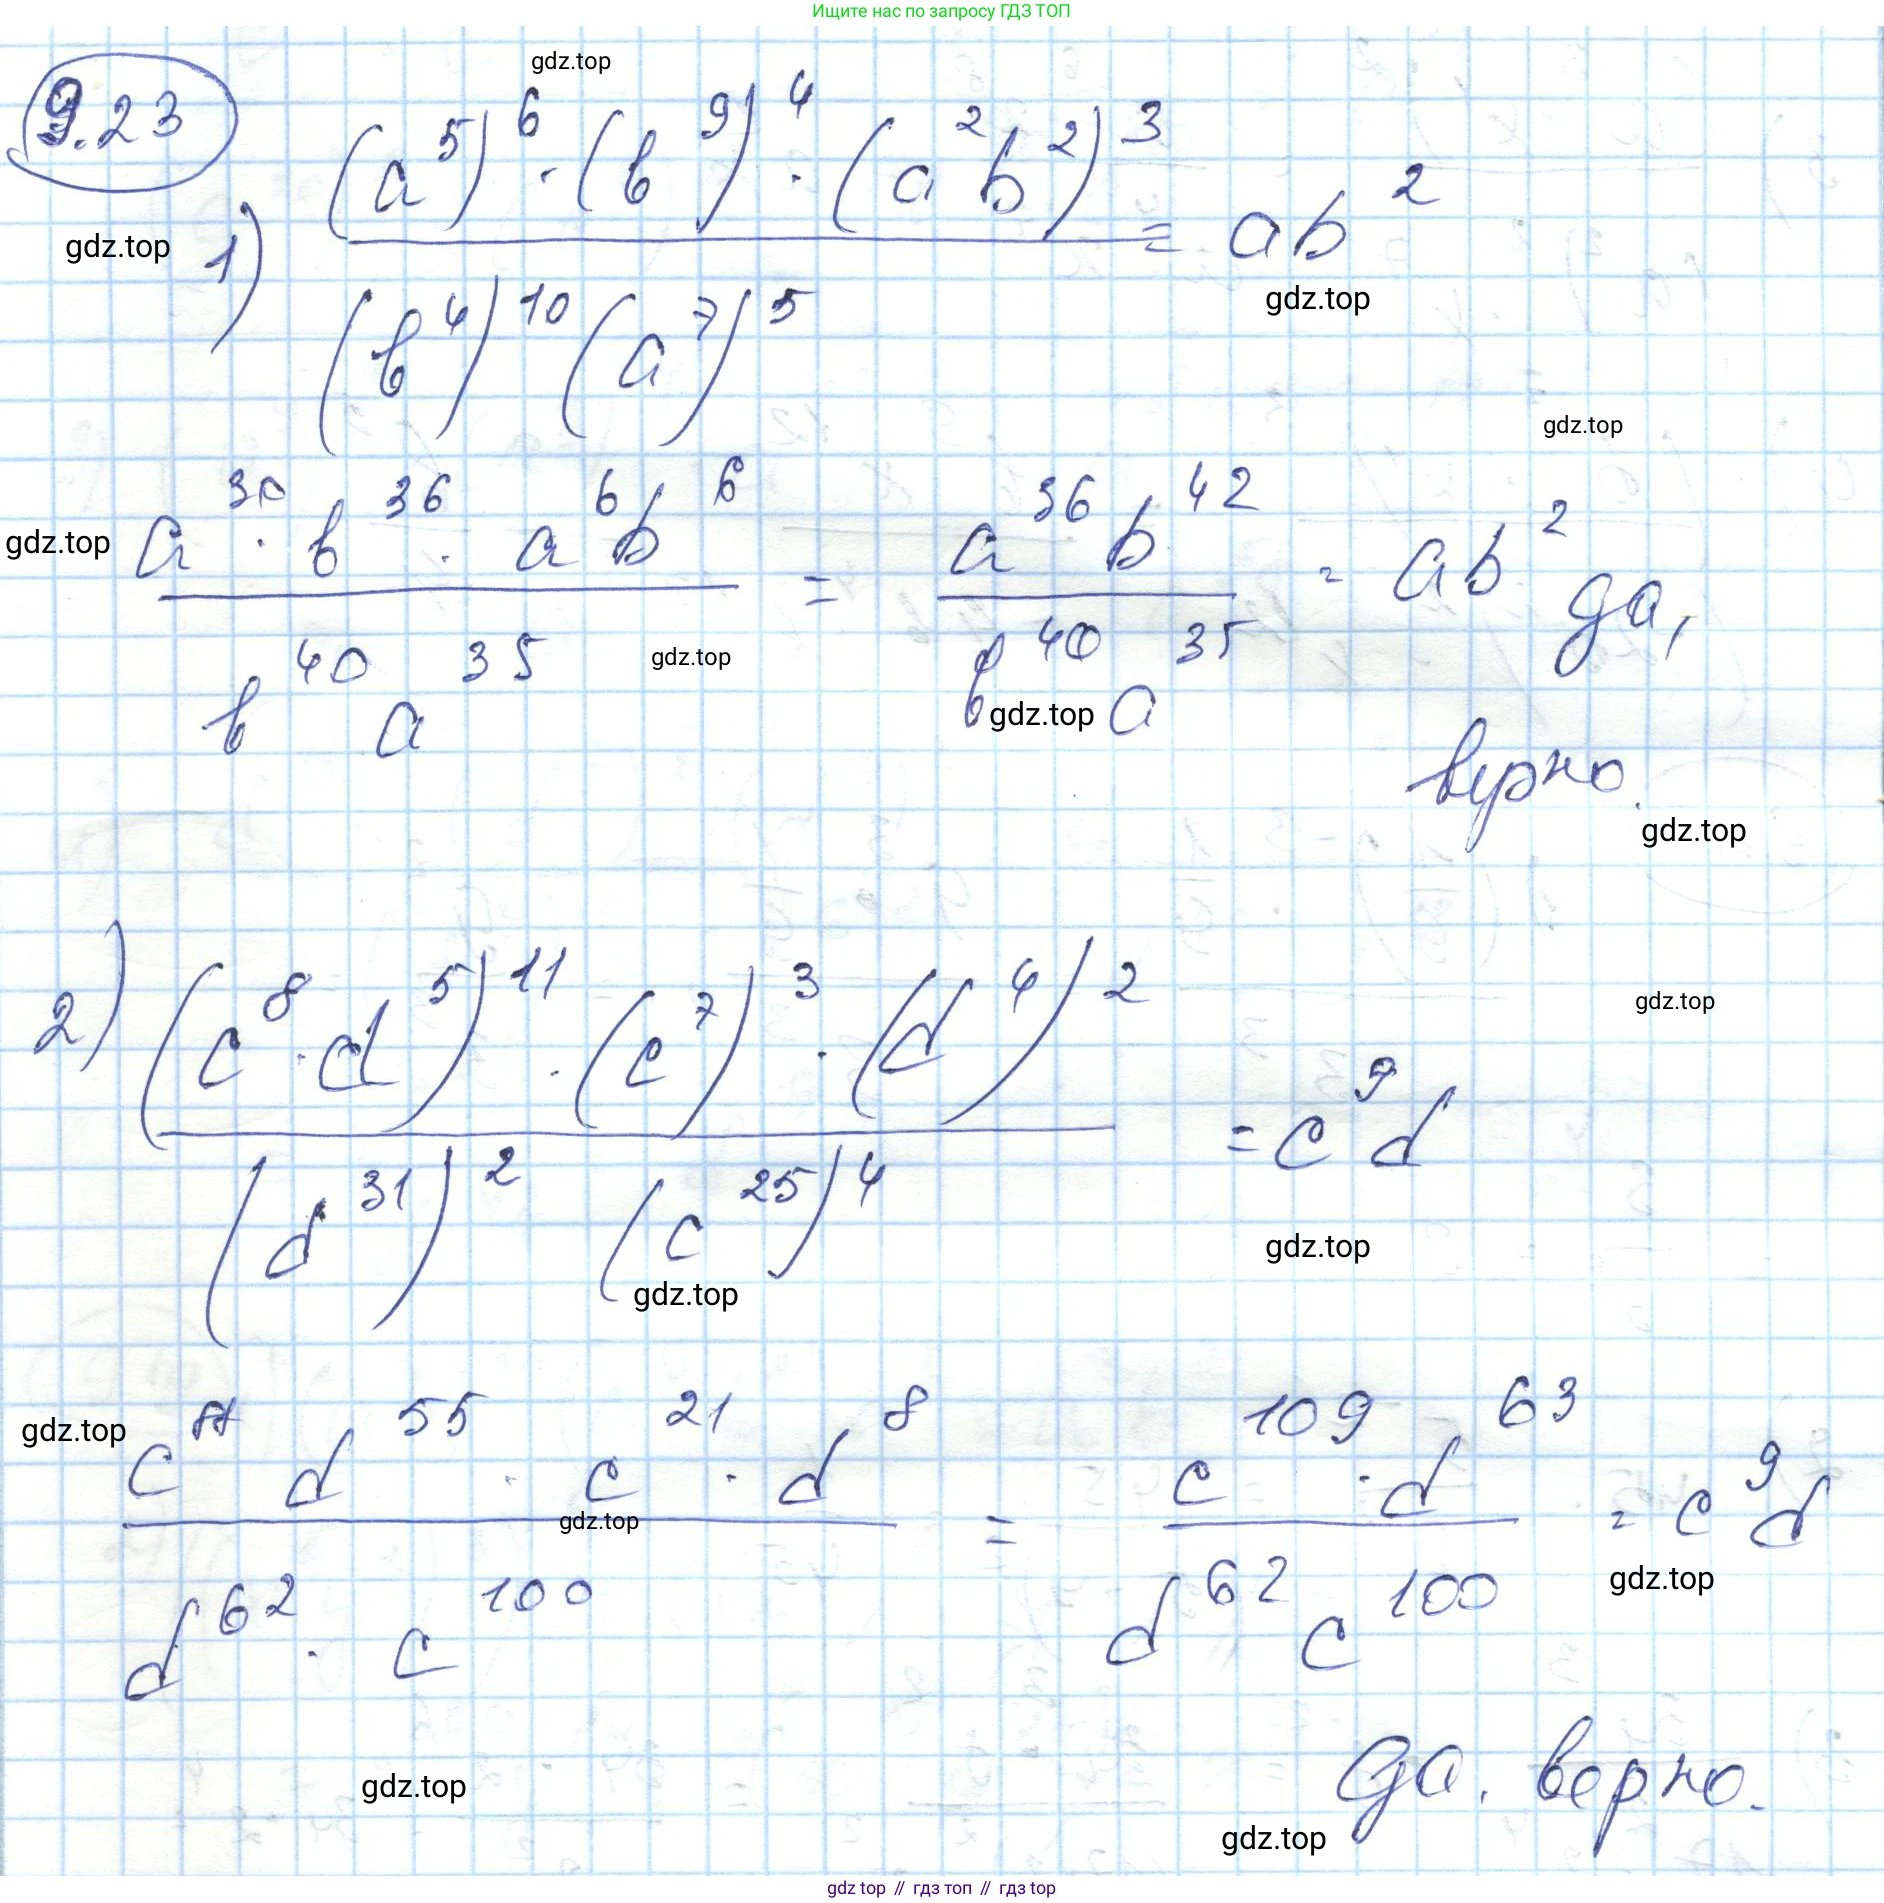 Ищите нас по запросу ГДЗ ТОП
gdz.top
9.23
1) ((a^5)^6 · (b^9)^4 · (a^2 b^2)^3) / ((b^4)^10 (a^7)^5) = ab^2
gdz.top
gdz.top
gdz.top
gdz.top
(a^30 · b^36 · a^6 b^6) / (b^40 a^35) = (a^36 b^42) / (b^40 a^35) = ab^2 да,
gdz.top
gdz.top
верно.
gdz.top
2) ((c^8 · d^5)^11 · (c^7)^3 · (d^4)^2) / ((d^31)^2 (c^25)^4) = c^9 d
gdz.top
gdz.top
gdz.top
gdz.top
(c^88 d^55 · c^21 · d^8) / (d^62 · c^100) = (c^109 · d^63) / (d^62 c^100) = c^9 d
gdz.top
gdz.top
да. верно.
gdz.top
gdz.top
gdz top // гдз топ // гдз top